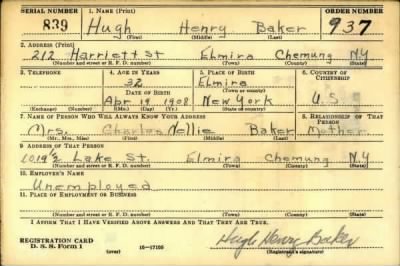 SERIAL NUMBER 1. NAME (Print) ORDER NUMBER
839 Hugh Henry Baker 937
(First) (Middle) (Last)
2. ADDRESS (Print)
212 Harriett St Elmira Chemung N.Y
(Number and street or R. F. D. number) (Town) (County) (State)
3. TELEPHONE 4. AGE IN YEARS 5. PLACE OF BIRTH 6. COUNTRY OF CITIZENSHIP
32 Elmira
DATE OF BIRTH (Town or county)
Apr 19 1908 New York U.S.
(Exchange) (Number) (Mo.) (Day) (Yr.) (State or country)
7. NAME OF PERSON WHO WILL ALWAYS KNOW YOUR ADDRESS 8. RELATIONSHIP OF THAT PERSON
Mrs. Charles Nellie Baker Mother
(Mr., Mrs., Miss) (First) (Middle) (Last)
9. ADDRESS OF THAT PERSON
1019½ Lake St. Elmira Chemung N.Y
(Number and street or R. F. D. number) (Town) (County) (State)
10. EMPLOYER'S NAME
Unemployed
11. PLACE OF EMPLOYMENT OR BUSINESS
(Number and street or R. F. D. number) (Town) (County) (State)
I AFFIRM THAT I HAVE VERIFIED ABOVE ANSWERS AND THAT THEY ARE TRUE.
REGISTRATION CARD
D. S. S. FORM 1 (over) 16—17105 Hugh Henry Baker
(Registrant's signature)